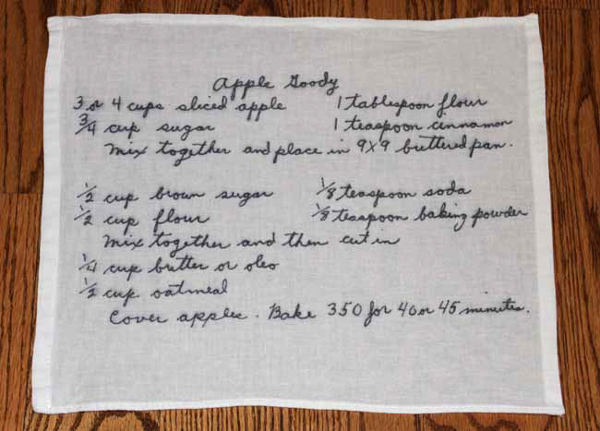 Apple Goody
3 or 4 cups sliced apple 1 tablespoon flour
3/4 cup sugar 1 teaspoon cinnamon
Mix together and place in 9x9 buttered pan.
1/2 cup brown sugar 1/8 teaspoon soda
1/2 cup flour 1/8 teaspoon baking powder
Mix together and then cut in
1/4 cup butter or oleo
1/2 cup oatmeal
Cover apples. Bake 350 for 40 or 45 minutes.